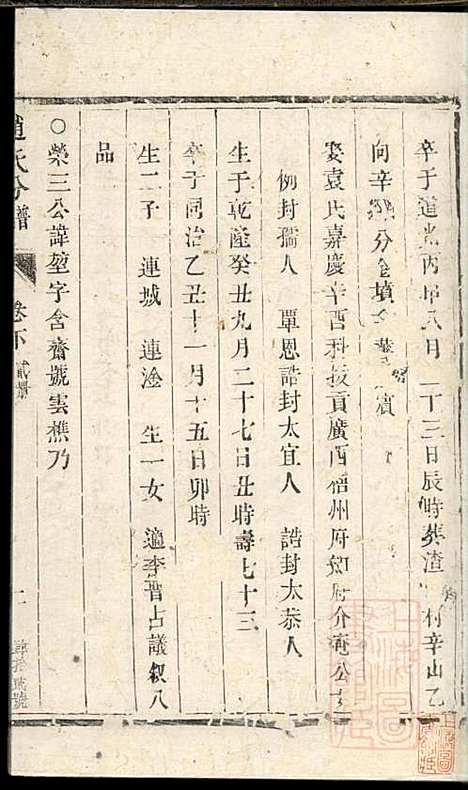 卒于道光丙申八月二十三日辰時葬渣村辛山乙
向辛分金墳
娶袁氏嘉慶辛酉科拔貢廣西梧州府知府介庵公女
例封孺人 覃恩誥封太宜人 誥封太恭人
生于乾隆癸丑九月二十七日丑時壽七十三
卒于同治乙丑十一月十五日卯時
生二子 連城 連淦 生一女 適李晋占議叙八
品
○榮三公諱堃字含齋號雲樵乃
趙氏分譜 卷下 貳册